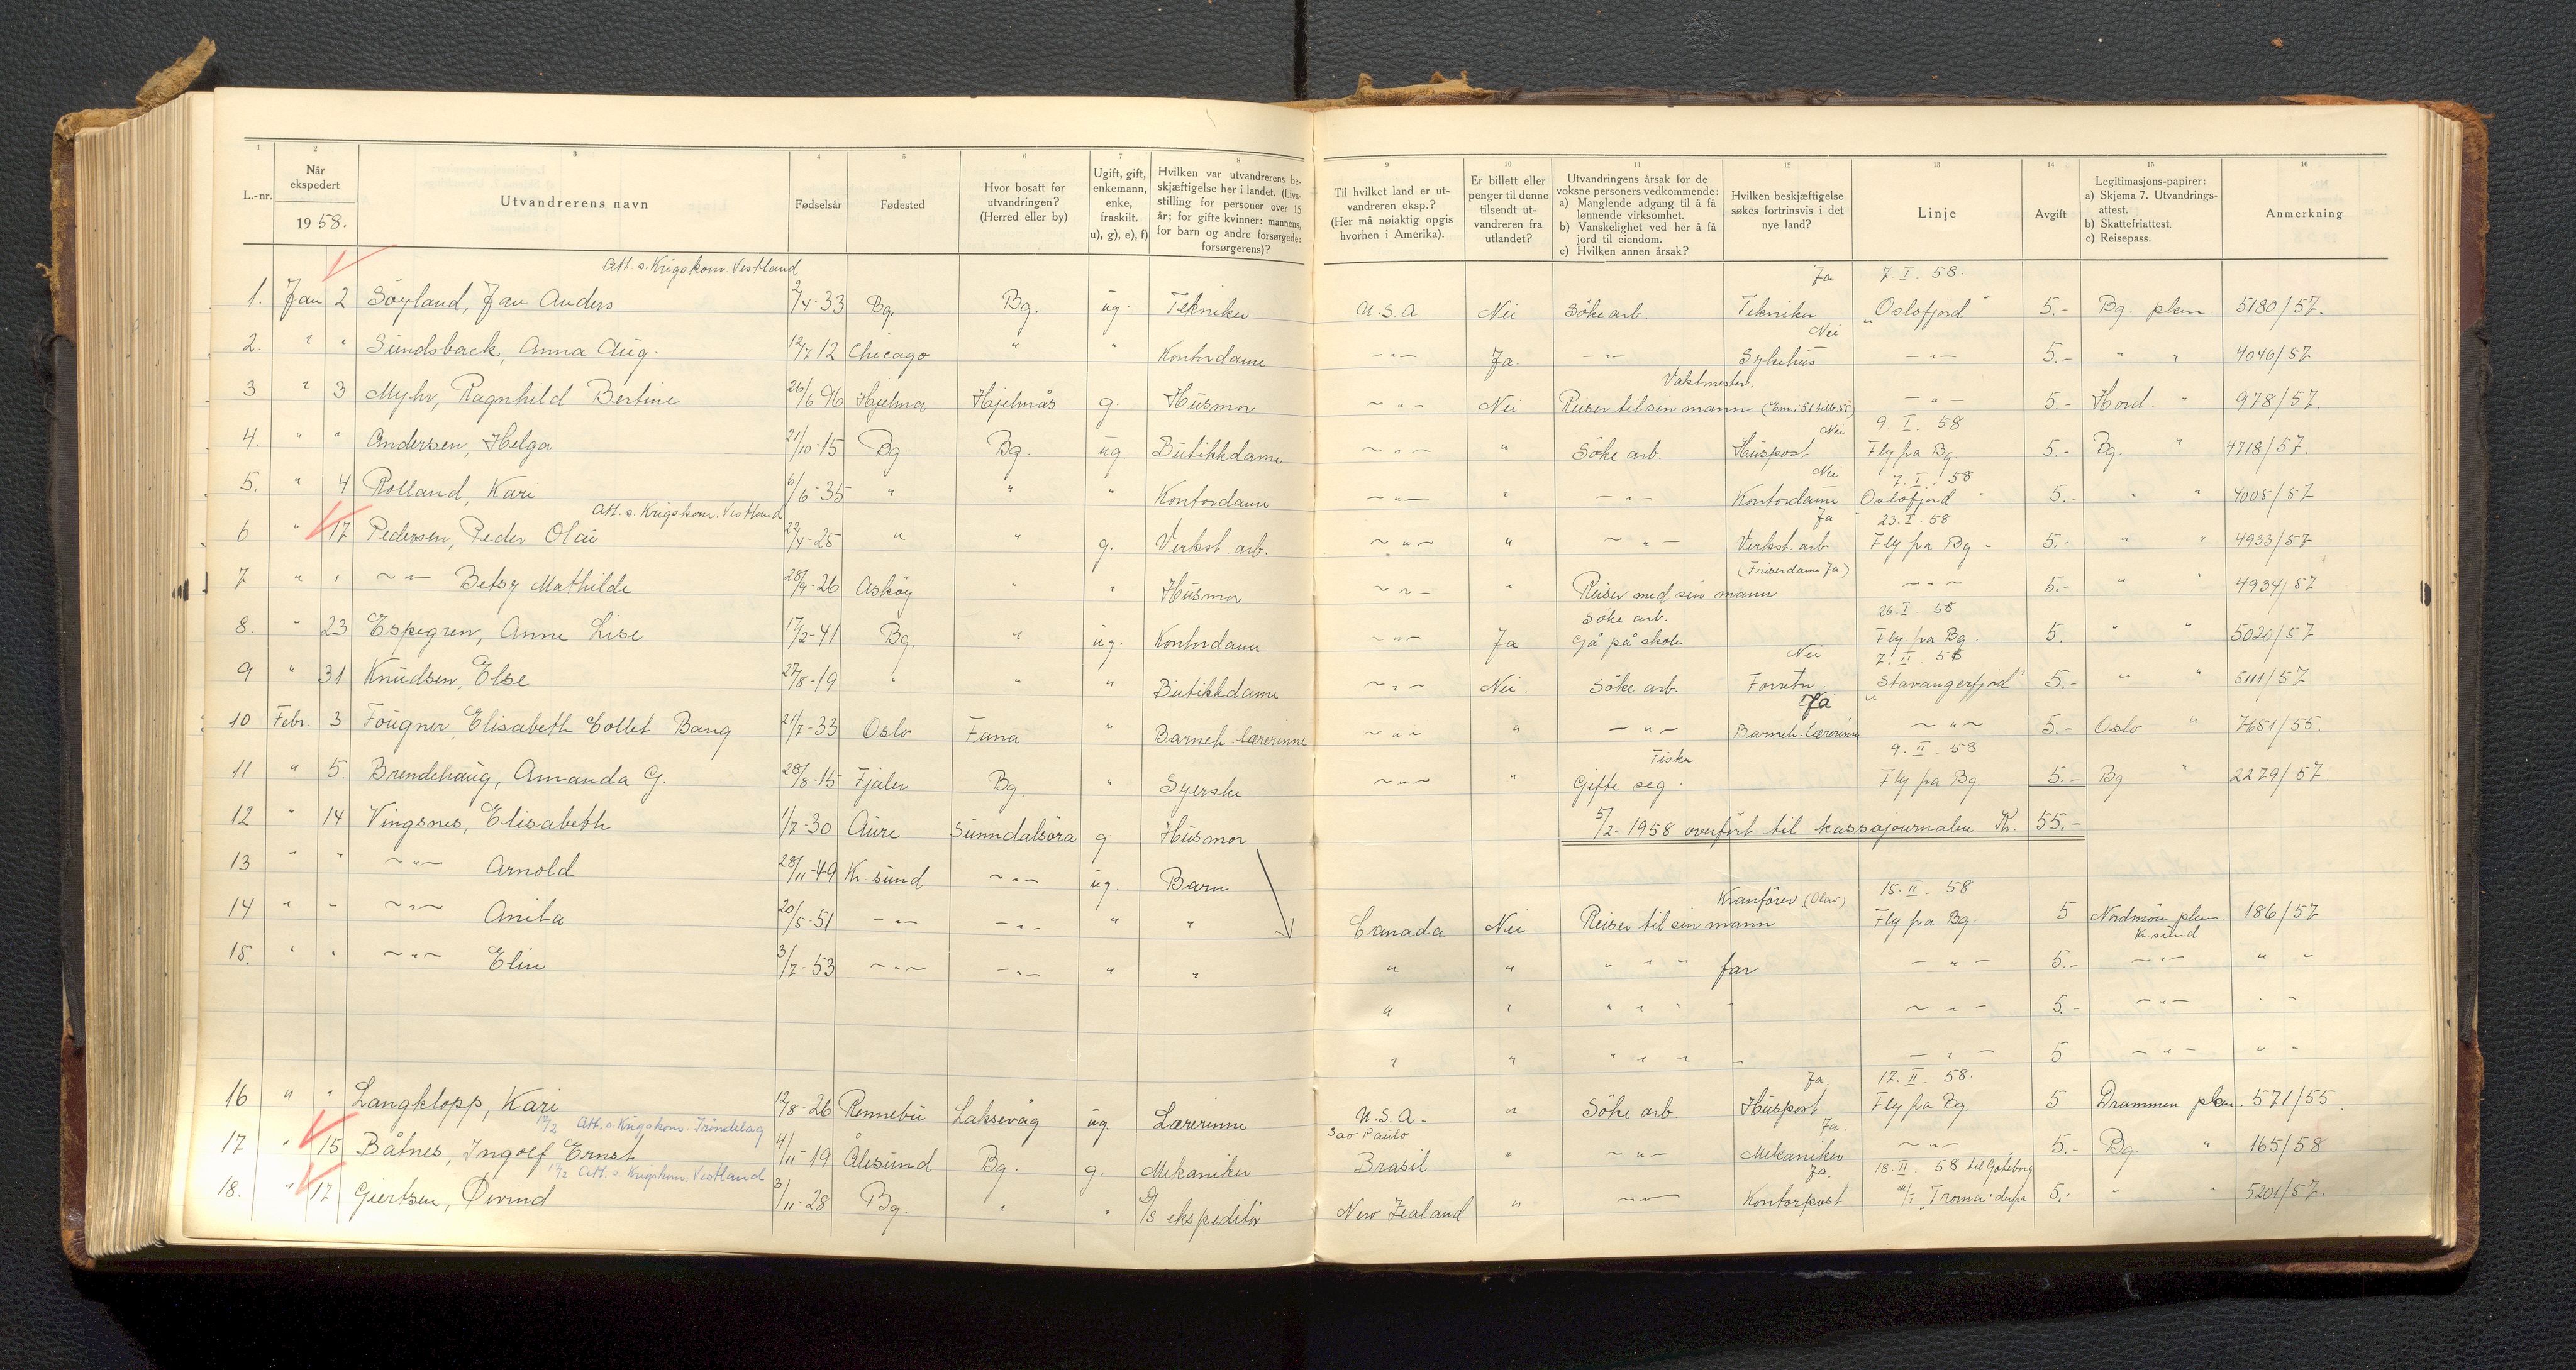 1 2 3 4 5 6 7 8 9 10 11 12 13 14 15 16
L.-nr. | Når ekspedert 1958. | Utvandrerens navn | Fødselsår | Fødested | Hvor bosatt før utvandringen? (Herred eller by) | Ugift, gift, enkemann, enke, fraskilt. u), g), e), f) | Hvilken var utvandrerens beskjæftigelse her i landet. (Livsstilling for personer over 15 år; for gifte kvinner: mannens, for barn og andre forsørgede: forsørgerens)? | Til hvilket land er utvandreren eksp.? (Her må nøiaktig opgis hvorhen i Amerika). | Er billett eller penger til denne tilsendt utvandreren fra utlandet? | Utvandringens årsak for de voksne personers vedkommende: a) Manglende adgang til å få lønnende virksomhet. b) Vanskelighet ved her å få jord til eiendom. c) Hvilken annen årsak? | Hvilken beskjæftigelse søkes fortrinsvis i det nye land? | Linje | Avgift | Legitimasjons-papirer: a) Skjema 7. Utvandringsattest. b) Skattefriattest. c) Reisepass. | Anmerkning
Att. s. Krigskom. Vestland Ja 7. I. 58.
1. Jan 2 Søyland, Jan Anders 2/4-33 Bg. Bg. ug. Tekniker U.S.A. Nei Søke arb. Tekniker "Oslofjord" 5.- Bg. pkm. 5180/57.
Nei
2. " " Sundsback, Anna Aug. 12/7 12 Chicago " " Kontordame -"- Ja. -"- Sykehus -"- 5.- " " 4046/57
Vaktmester.
3 " 3 Myhr, Ragnhild Bertine 26/6 96 Hjelmås Hjelmås g. Husmor -"- Nei Reiser til sin mann -"- 5.- Hord. " 978/57
Nei 9. I. 58
4. " " Andersen, Helga 21/10-15 Bg. Bg. ug. Butikkdame -"- " Søke arb. Huspost Fly fra Bg. 5.- Bg. " 4718/57.
Nei 7. I. 58
5. " 4 Rolland, Kari 6/6-35 " " " Kontordame -"- " -"- Kontordame Oslofjord " 5.- " " 4005/57
Att. s. Krigskom. Vestland Ja 23. I. 58
6 " 17 Pedersen, Peder Olai 22/4-25 " " g. Verkst. arb. -"- " -"- Verkst. arb. Fly fra Bg - 5.- " " 4933/57
(Friserdame Ja.)
7 " " -"- Betsy Mathilde 28/9-26 Askøy " " Husmor -"- " Reiser med sin mann -"- 5.- " " 4934/57
Søke arb. 26. I. 58
8. " 23 Espegren, Anne Lise 17/2-41 Bg. " ug. Kontordame -"- Ja Gå på skole Fly fra Bg. 5. " " 5020/57
Nei 7. II. 58
9 " 31 Knudsen, Else 27/8-19 " " " Butikkdame -"- Nei. Søke arb. Forretn. "Stavangerfjord" 5.- " " 5111/57
Ja
10 Febr. 3 Fougner, Elisabeth Collet Bang 21/7-33 Oslo Fana " Barneh. lærerinne -"- " -"- Barneh. lærerinne -"- 5.- Oslo " 7651/55.
Fiska 9. II. 58
11 " 5. Brendehaug, Amanda G. 28/8-15 Fjaler Bg. " Syerske -"- " Gifte seg. Fly fra Bg. 5.- Bg. " 2279/57.
12 " 14 Vingsnes, Elisabeth 1/7-30 Aure Sunndalsøra g Husmor 5/2-1958 overført til kassajournalen Kr. 55.-
13 " " -"- Arnold 28/11-49 Kr. sund -"- ug. Barn
Kranfører (Olav) 15. II. 58
14 " " -"- Anita 20/5-51 -"- -"- " " Canada Nei Reiser til sin mann Fly fra Bg. 5 Nordmøre pkm. 186/57
Kr. sund
15. " " -"- Elin 3/7-53 -"- -"- " " " " " " " far -"- 5.- -"- " -
" " " " " - -"- 5.- -"- " -
" " " " " - -"- 5 -"- " -
Ja. 17. II. 58.
16 " " Langklopp, Kari 12/8-26 Rennebu Laksevåg ug. Lærerinne U.S.A. - " Søke arb. Huspost Fly fra Bg. 5 Drammen pkm. 571/55.
17/2 Att. s. Krigskom. Trøndelag Sao Paulo Ja.
17 " 15 Båtnes, Ingolf Ernst 4/11-19 Ålesund Bg. g. Mekaniker Brasil " -"- Mekaniker -"- 5.- Bg. " 165/58
17/2 Att. s. Krigskom. Vestland Ja. 18. II. 58 til Gøteborg
18. " 17 Giertsen, Øivind 3/11-28 Bg. " " D/s ekspeditør New Zealand " -"- Kontorpost M/T "Troma" derfra 5.- " " 5201/57.